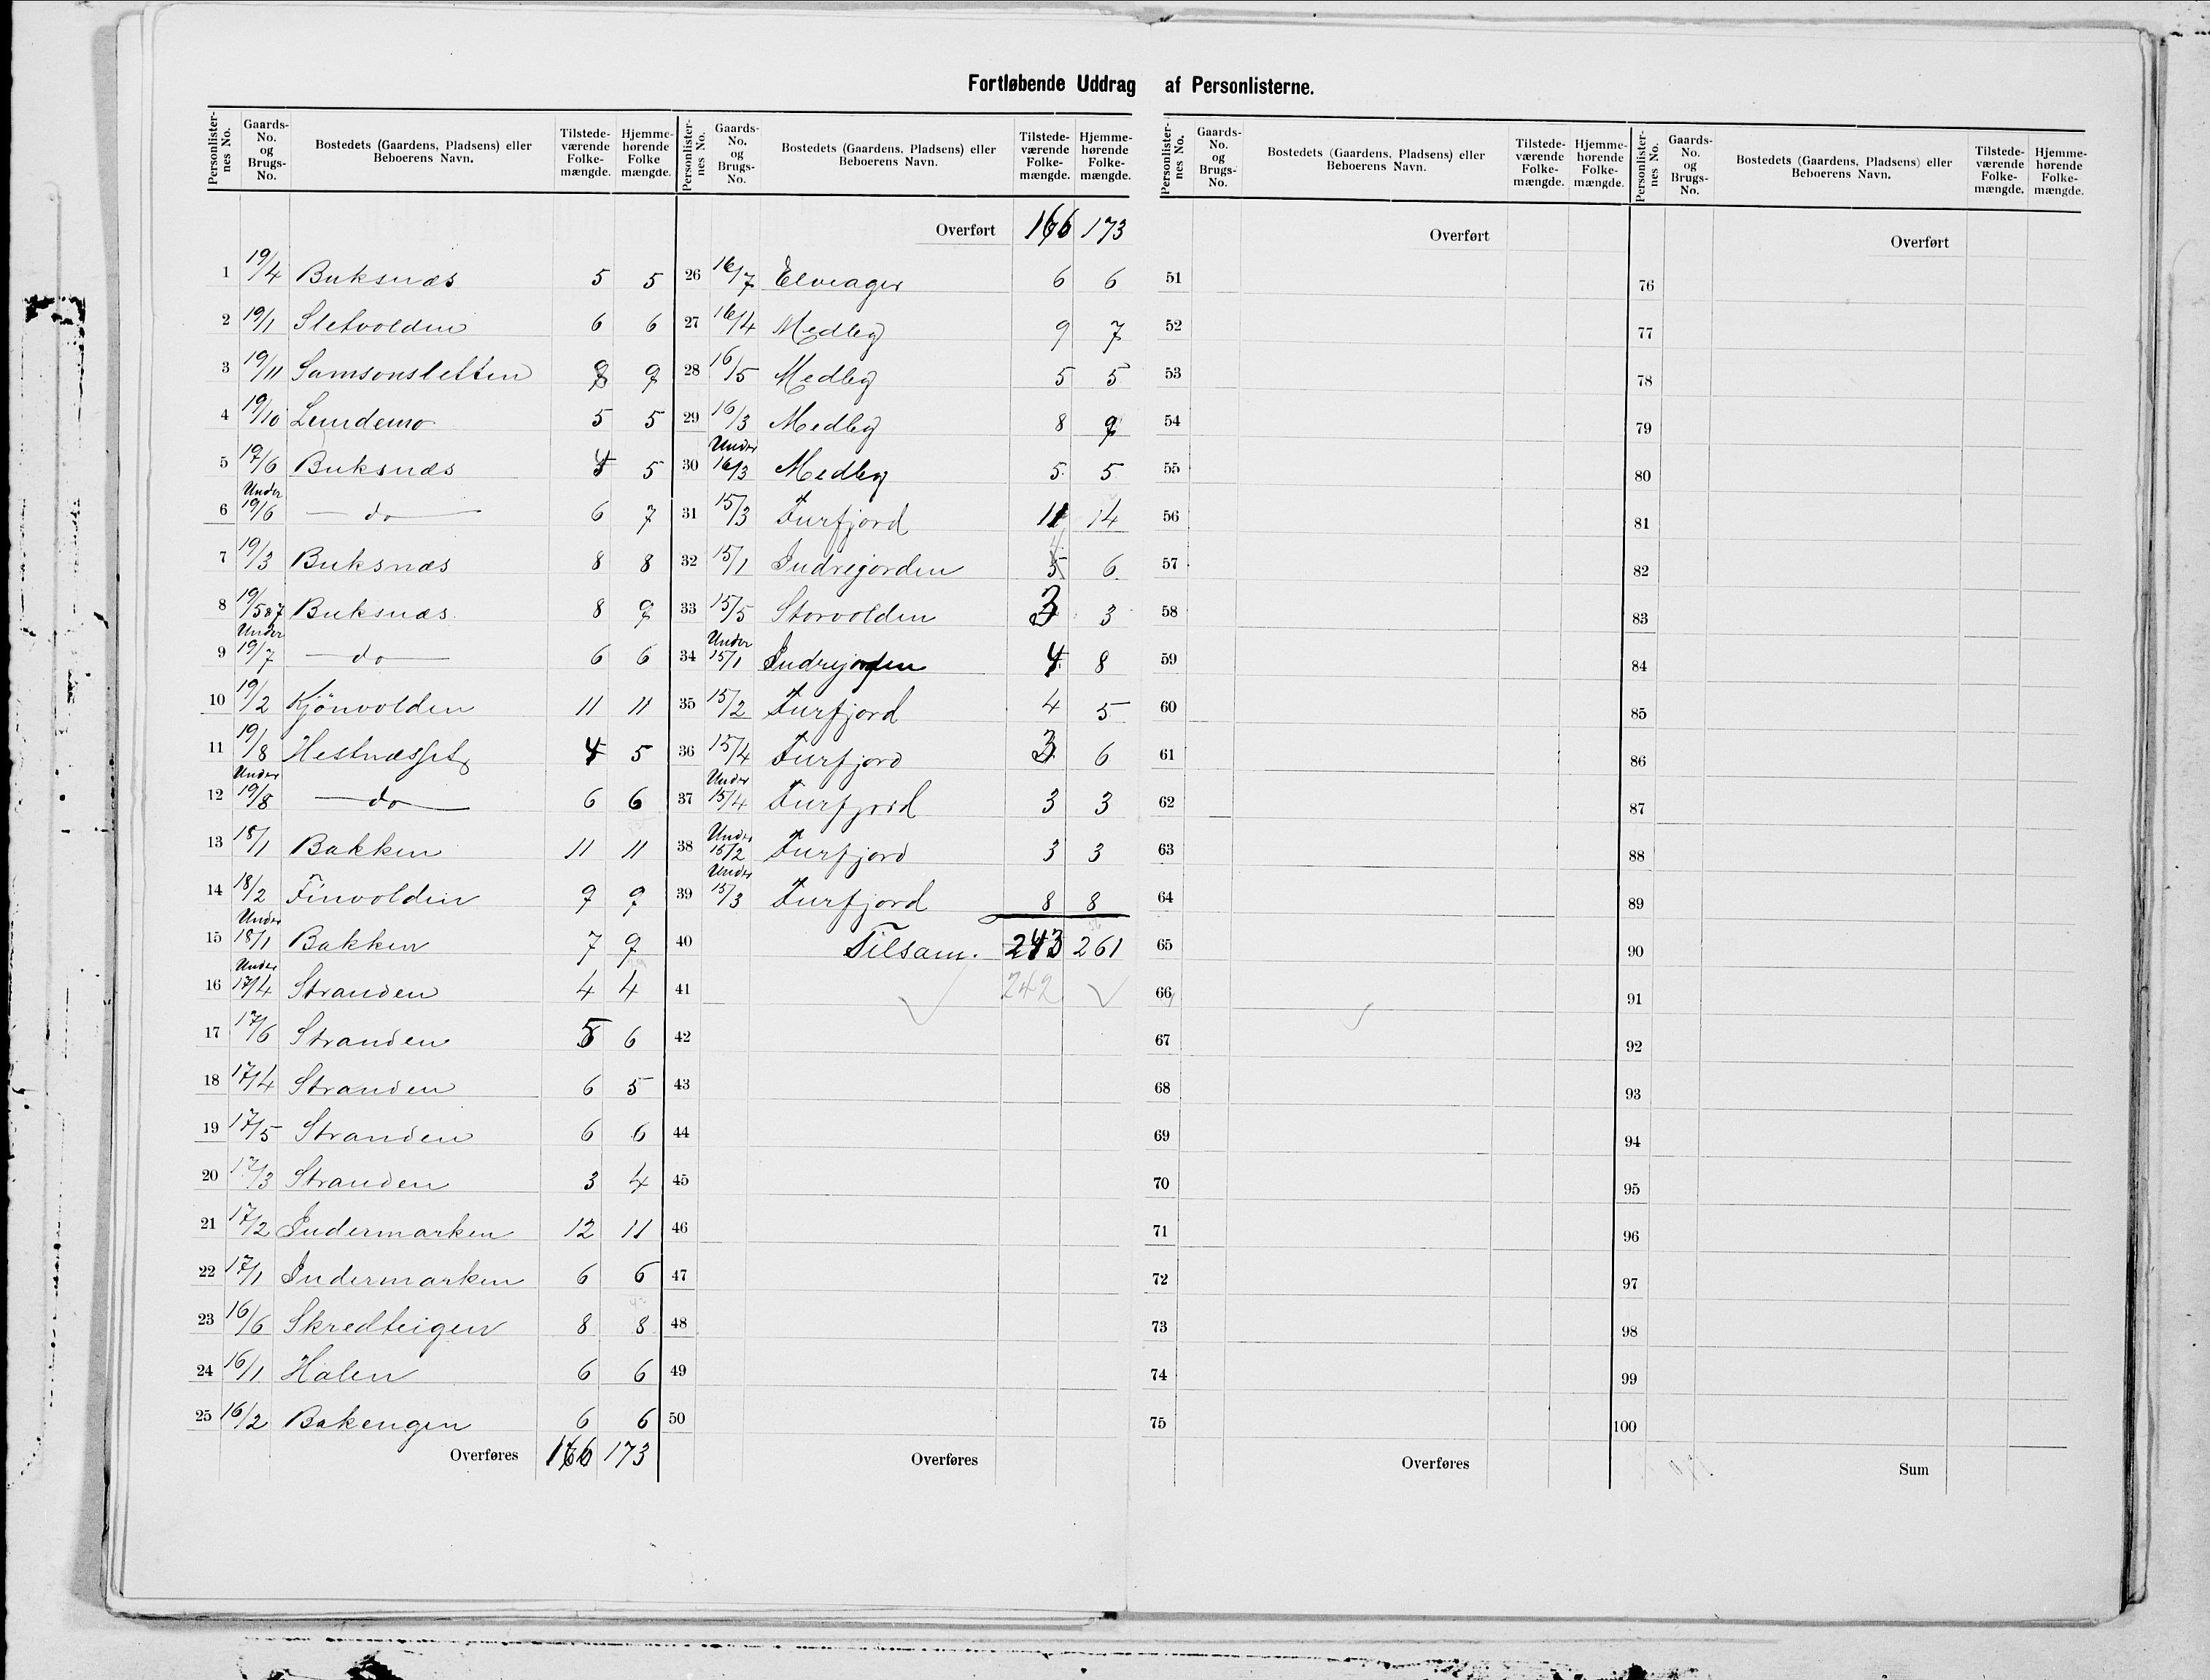 Fortløbende Uddrag af Personlisterne.
Personlister-nes No. | Gaards-No. og Brugs-No. | Bostedets (Gaardens, Pladsens) eller Beboerens Navn. | Tilstede-værende Folke-mængde. | Hjemme-hørende Folke mængde.
1 19/4 Buksnæs 5 5
2 19/1 Sletvolden 6 6
3 19/11 Samsonsletten 9
4 19/10 Lundemo 5 5
5 19/6 Buksnæs 4 5
6 Under 19/6 — do — 6 7
7 19/3 Buksnæs 8 8
8 19/5&7 Buksnæs 8 9
9 Under 19/7 — do — 6 6
10 19/2 Kjönvolden 11 11
11 19/8 Hestnæsset 4 5
12 Under 19/8 — do — 6 6
13 18/1 Bakken 11 11
14 18/2 Finvolden 9 9
15 Under 18/1 Bakken 7 9
16 Under 17/4 Stranden 4 4
17 17/6 Stranden 5 6
18 17/4 Stranden 6 5
19 17/5 Stranden 6 6
20 17/3 Stranden 3 4
21 17/2 Indermarken 12 11
22 17/1 Indermarken 6 6
23 16/6 Skredteigen 8 8
24 16/1 Halen 6 6
25 16/2 Bakengen 6 6
Overføres 166 173
Personlister-nes No. | Gaards-No. og Brugs-No. | Bostedets (Gaardens, Pladsens) eller Beboerens Navn. | Tilstede-værende Folke-mængde. | Hjemme-hørende Folke-mængde.
Overført 166 173
26 16/7 Elveager 6 6
27 16/4 Medby 9 7
28 16/5 Medby 5 5
29 16/3 Medby 8 9
30 Under 16/3 Medby 5 5
31 15/3 Furfjord 11 14
32 15/1 Indrejorden 5 6
33 15/5 Storvolden 3 3
34 Under 15/1 Indrejorden 4 8
35 15/2 Furfjord 4 5
36 15/4 Furfjord 3 6
37 Under 15/4 Furfjord 3 3
38 Under 15/2 Furfjord 3 3
39 Under 15/3 Furfjord 8 8
40 Tilsam. 243 261
41 242
42
43
44
45
46
47
48
49
50
Overføres
Personlister-nes No. | Gaards-No. og Brugs-No. | Bostedets (Gaardens, Pladsens) eller Beboerens Navn. | Tilstede-værende Folke-mængde. | Hjemme-hørende Folke-mængde.
Overført
51
52
53
54
55
56
57
58
59
60
61
62
63
64
65
66
67
68
69
70
71
72
73
74
75
Overføres
Personlister-nes No. | Gaards-No. og Brugs-No. | Bostedets (Gaardens, Pladsens) eller Beboerens Navn. | Tilstede-værende Folke-mængde. | Hjemme-hørende Folke-mængde.
Overført
76
77
78
79
80
81
82
83
84
85
86
87
88
89
90
91
92
93
94
95
96
97
98
99
100
Sum